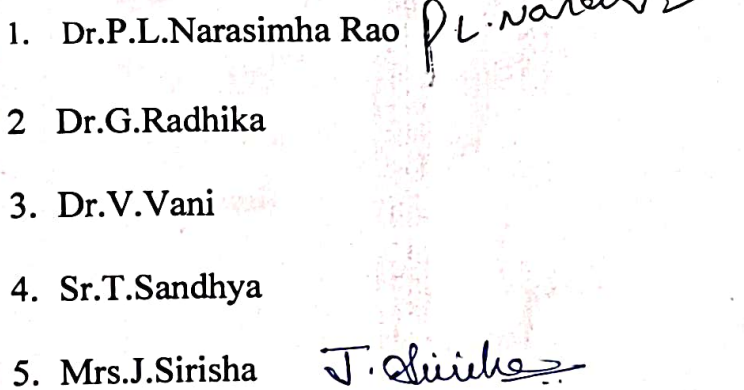 1. Dr.P.L.Narasimha Rao P L.
2 Dr.G.Radhika
3. Dr.V.Vani
4. Sr.T.Sandhya
5. Mrs.J.Sirisha J.